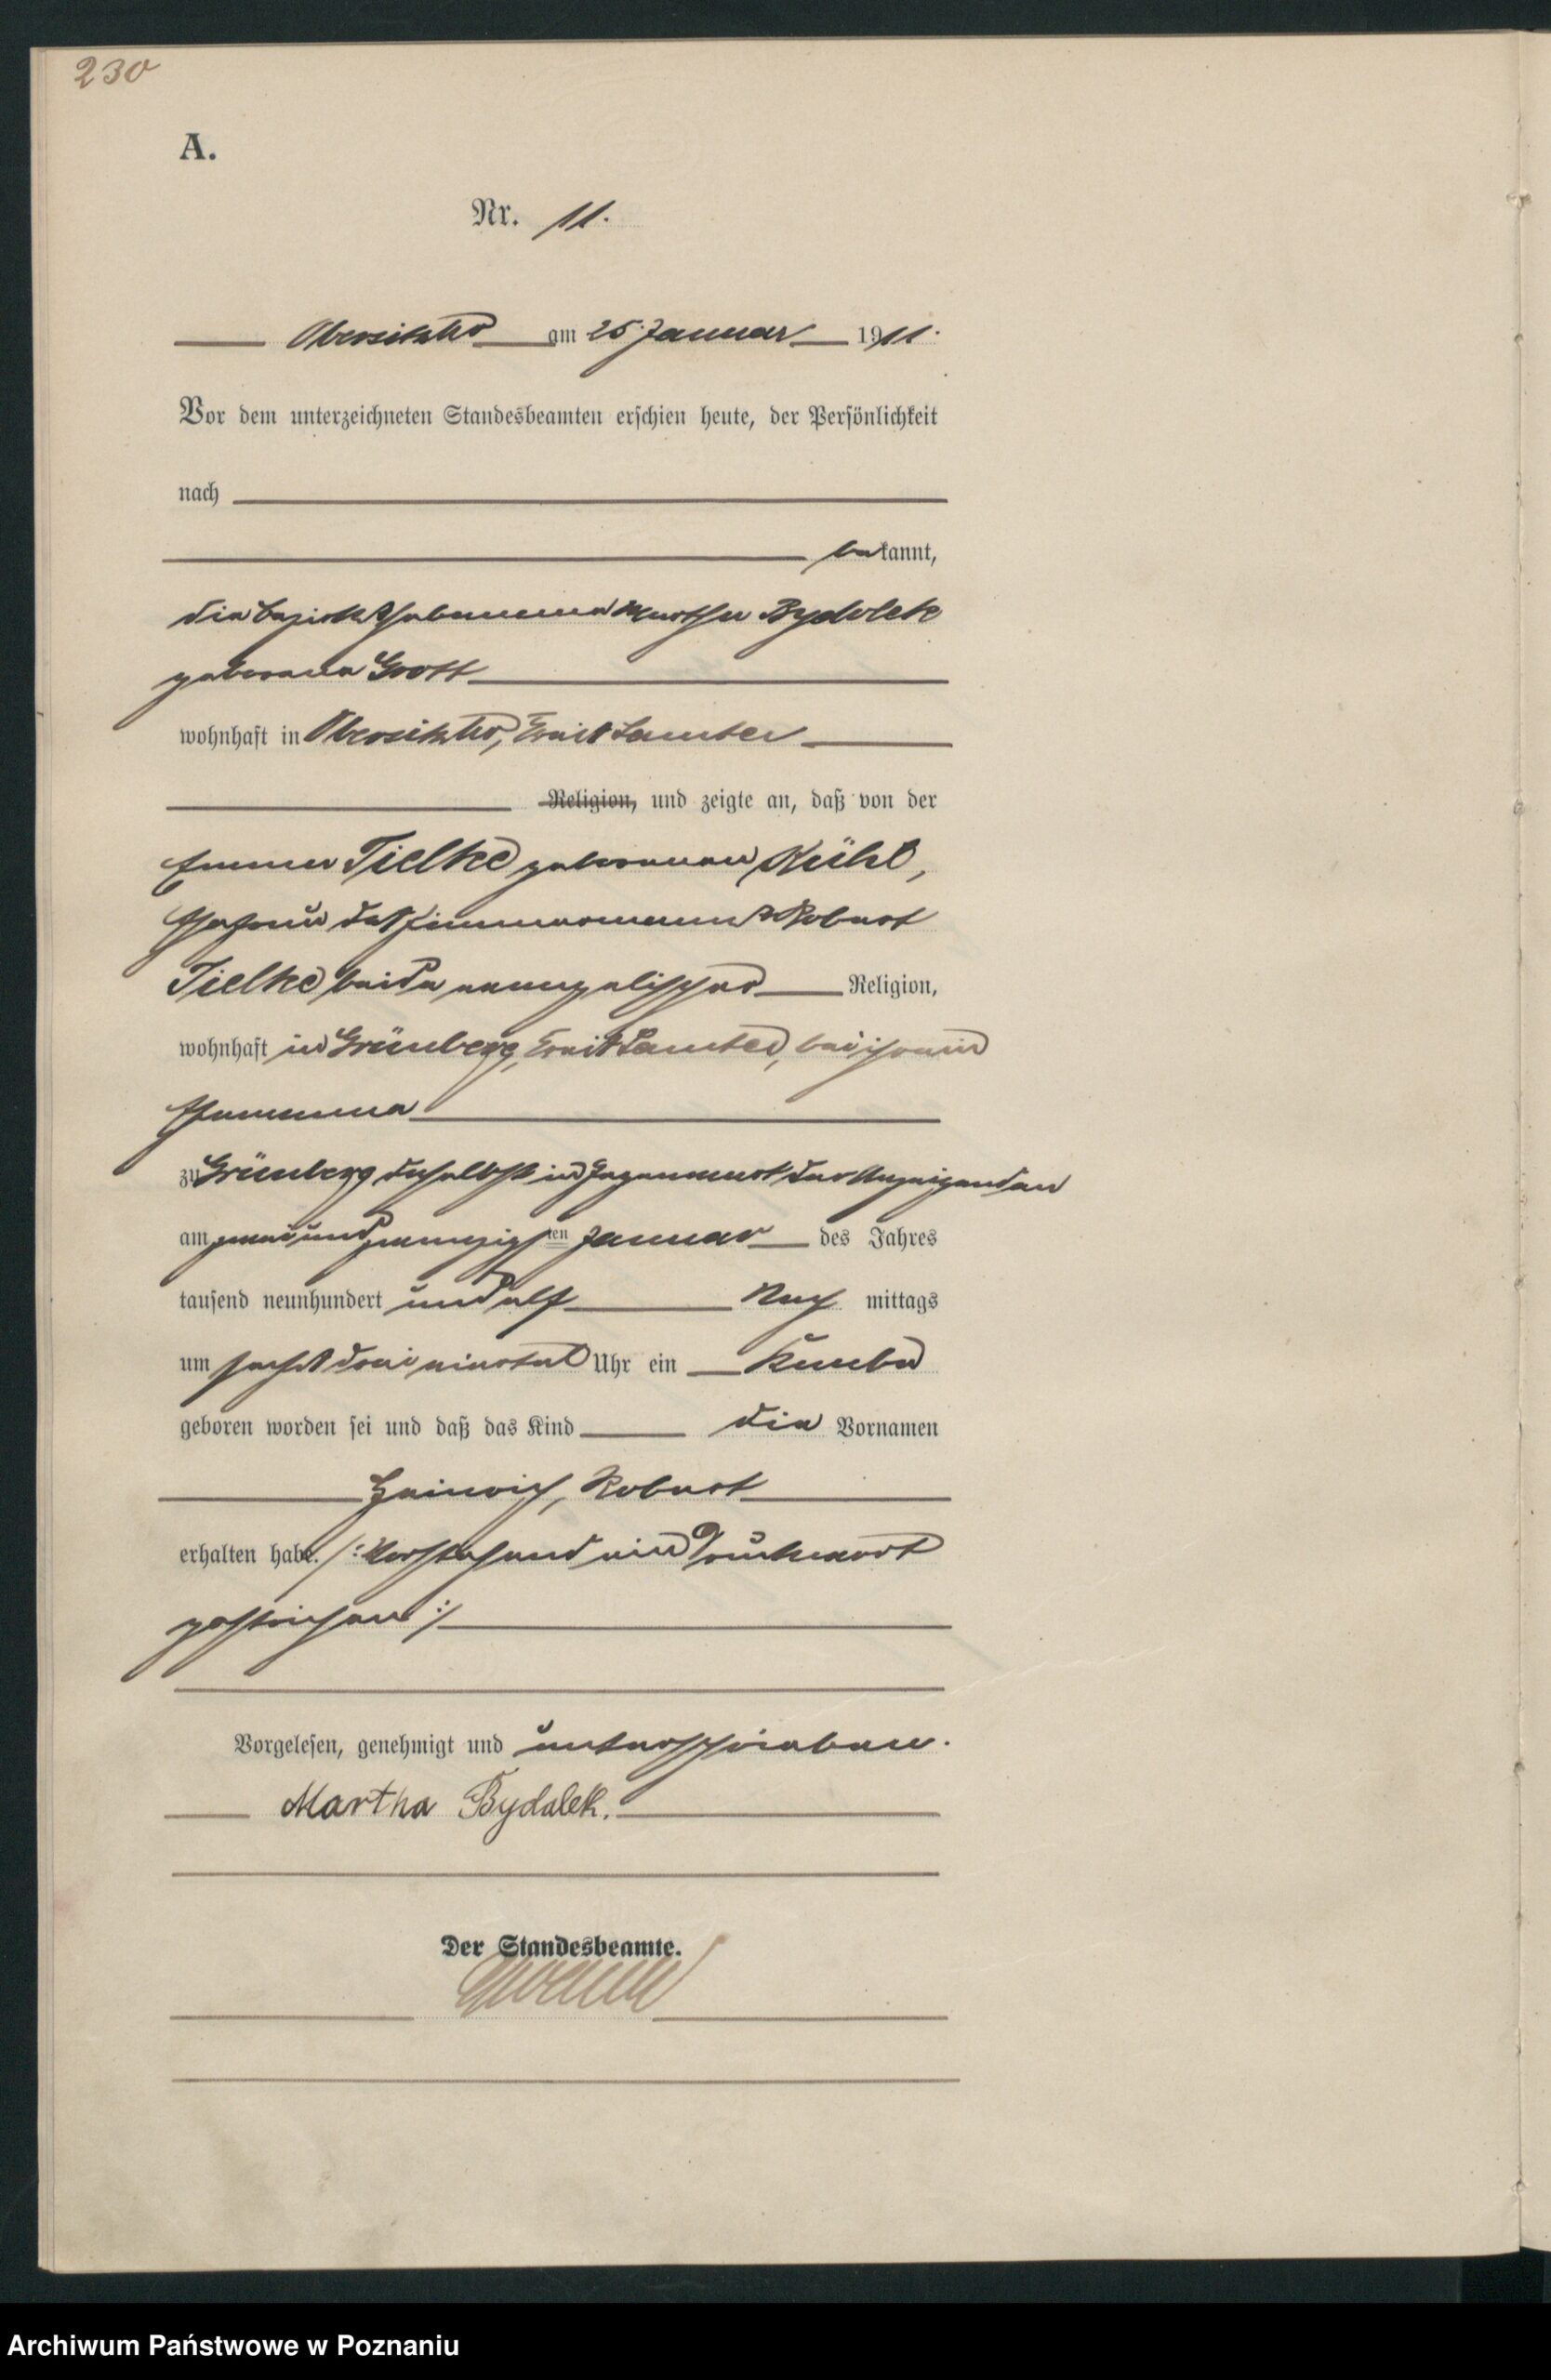 230
A.
Nr. 11.
Obersitzko am 25. Januar 1911.
Vor dem unterzeichneten Standesbeamten erschien heute, der Persönlichkeit
nach
bekannt,
die Bezirkshebamme Martha Bydolek
geborene Grott
wohnhaft in Obersitzko, Kreis Samter
Religion, und zeigte an, daß von der
Emma Tielke geborenen Kühl,
Ehefrau des Zimmermanns Robert
Tielke beide evangelischer Religion,
wohnhaft in Grünberg, Kreis Samter, bei ihrem
Ehemanne
zu Grünberg daselbst in Gegenwart der Anzeigenden
am zwei und zwanzigsten Januar des Jahres
tausend neunhundert und elf Nach mittags
um sechs drei viertel Uhr ein Knabe
geboren worden sei und daß das Kind die Vornamen
Heinrich, Robert
erhalten habe. /: Vorstehend ein Druckwort
gestrichen :/
Vorgelesen, genehmigt und unterschrieben.
Martha Bydalek.
Der Standesbeamte.
Archiwum Państwowe w Poznaniu